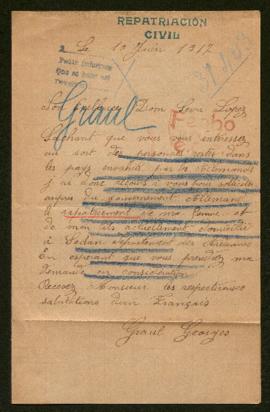 REPATRIACIÓN
CIVIL
Le 10 Juin 1917
Graul
Son Excellence Dom Lopez
Sachant que vous vous interessez
au sort des personnes dans
les pays envahis par les allemands
j ai donc
aupres du gouvernement allemand
le rapatriement de ma femme et
de mon fils actuellement
à Sedan departement des Ardennes
En esperant que vous prendrez ma
demande en consideration
Recevez Monsieur les respectueuses
salutations d'un Français
Graul Georges